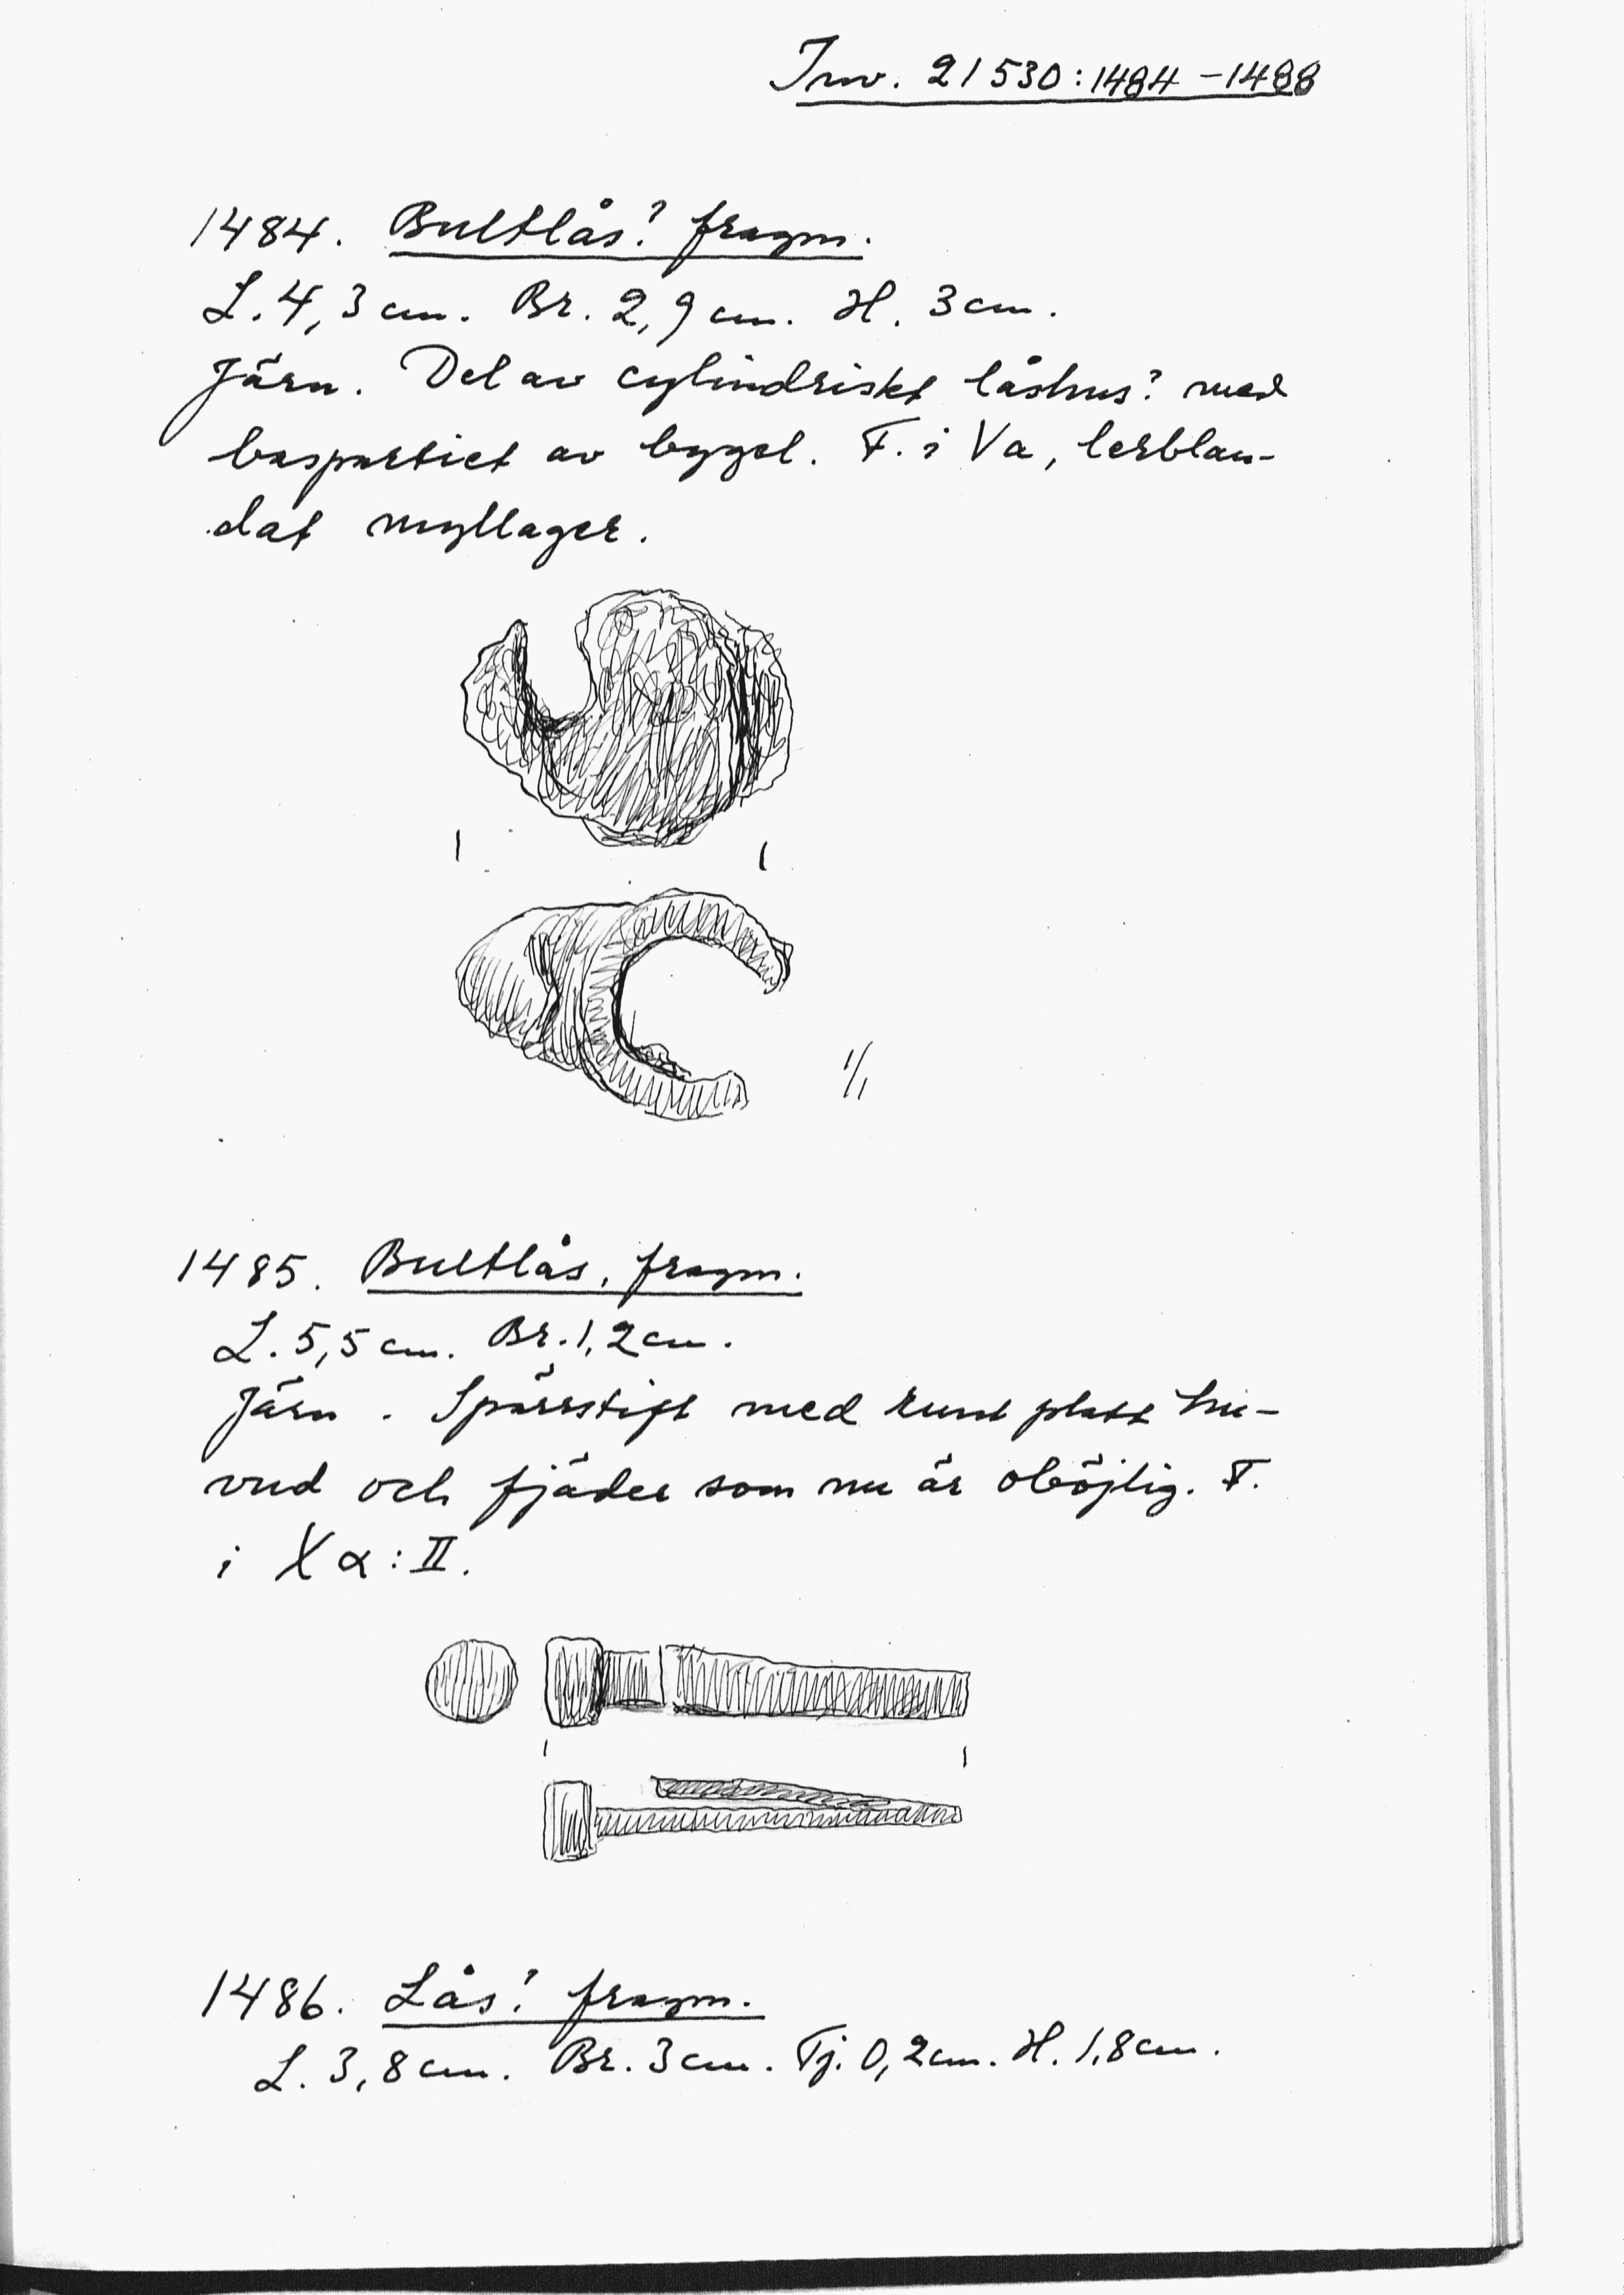 Inv. 21530:1484-1488
1484. Bultlås? fragm.
L. 4,3 cm. Br. 2,9 cm. H. 3 cm.
Järn. Del av cylindriskt låshus? med
baspartiet av bygel. F. i Va, lerblan-
dat myllager.
1/1
1485. Bultlås, fragm.
L. 5,5 cm. Br. 1,2 cm.
Järn. Spärrstift med runt platt hu-
vud och fjäder som nu är oböjlig. F.
i Xα:II.
1486. Lås? fragm.
L. 3,8 cm. Br. 3 cm. Tj. 0,2 cm. H. 1,8 cm.